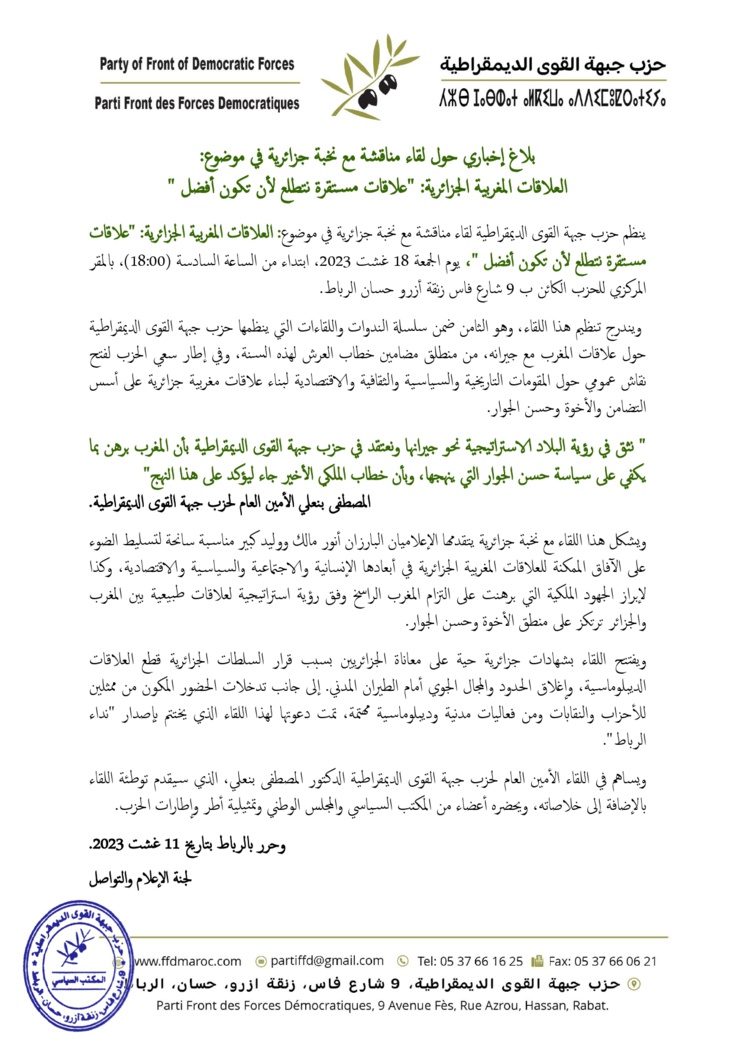 Party of Front of Democratic Forces
Parti Front des Forces Democratiques
حزب جبهة القوى الديمقراطية
بلاغ إخباري حول لقاء مناقشة مع نخبة جزائرية في موضوع:
العلاقات المغربية الجزائرية: "علاقات مستقرة نتطلع لأن تكون أفضل "
ينظم حزب جبهة القوى الديمقراطية لقاء مناقشة مع نخبة جزائرية في موضوع: العلاقات المغربية الجزائرية: "علاقات
مستقرة نتطلع لأن تكون أفضل "، يوم الجمعة 18 غشت 2023، ابتداء من الساعة السادسة (18:00)، بالمقر
المركزي للحزب الكائن ب 9 شارع فاس زنقة أزرو حسان الرباط.
ويندرج تنظيم هذا اللقاء، وهو الثامن ضمن سلسلة الندوات واللقاءات التي ينظمها حزب جبهة القوى الديمقراطية
حول علاقات المغرب مع جيرانه، من منطلق مضامين خطاب العرش لهذه السنة، وفي إطار سعي الحزب لفتح
نقاش عمومي حول المقومات التاريخية والسياسية والثقافية والاقتصادية لبناء علاقات مغربية جزائرية على أسس
التضامن والأخوة وحسن الجوار.
" نثق في رؤية البلاد الاستراتيجية نحو جيرانها ونعتقد في حزب جبهة القوى الديمقراطية بأن المغرب برهن بما
يكفي على سياسة حسن الجوار التي ينهجها، وبأن خطاب الملكي الأخير جاء ليؤكد على هذا النهج"
المصطفى بنعلي الأمين العام لحزب جبهة القوى الديمقراطية.
ويشكل هذا اللقاء مع نخبة جزائرية يتقدمها الإعلاميان البارزان أنور مالك ووليد كبير مناسبة سانحة لتسليط الضوء
على الآفاق الممكنة للعلاقات المغربية الجزائرية في أبعادها الإنسانية والاجتماعية والسياسية والاقتصادية، وكذا
لإبراز الجهود الملكية التي برهنت على التزام المغرب الراسخ وفق رؤية استراتيجية لعلاقات طبيعية بين المغرب
والجزائر ترتكز على منطق الأخوة وحسن الجوار.
ويفتتح اللقاء بشهادات جزائرية حية على معاناة الجزائريين بسبب قرار السلطات الجزائرية قطع العلاقات
الديبلوماسية، وإغلاق الحدود والمجال الجوي أمام الطيران المدني. إلى جانب تدخلات الحضور المكون من ممثلين
للأحزاب والنقابات ومن فعاليات مدنية وديبلوماسية مهتمة، تمت دعوتها لهذا اللقاء الذي يختتم بإصدار "نداء
الرباط".
ويساهم في اللقاء الأمين العام لحزب جبهة القوى الديمقراطية الدكتور المصطفى بنعلي، الذي سيقدم توطئة اللقاء
بالإضافة إلى خلاصاته، ويحضره أعضاء من المكتب السياسي والمجلس الوطني وتمثيلية أطر وإطارات الحزب.
وحرر بالرباط بتاريخ 11 غشت 2023.
لجنة الإعلام والتواصل
حزب جبهة القوى الديمقراطية
المكتب السياسي
9 شارع فاس، زنقة أزرو، حسان، الرباط
www.ffdmaroc.com partiffd@gmail.com Tel: 05 37 66 16 25 Fax: 05 37 66 06 21
حزب جبهة القوى الديمقراطية، 9 شارع فاس، زنقة ازرو، حسان، الرباط
Parti Front des Forces Démocratiques, 9 Avenue Fès, Rue Azrou, Hassan, Rabat.